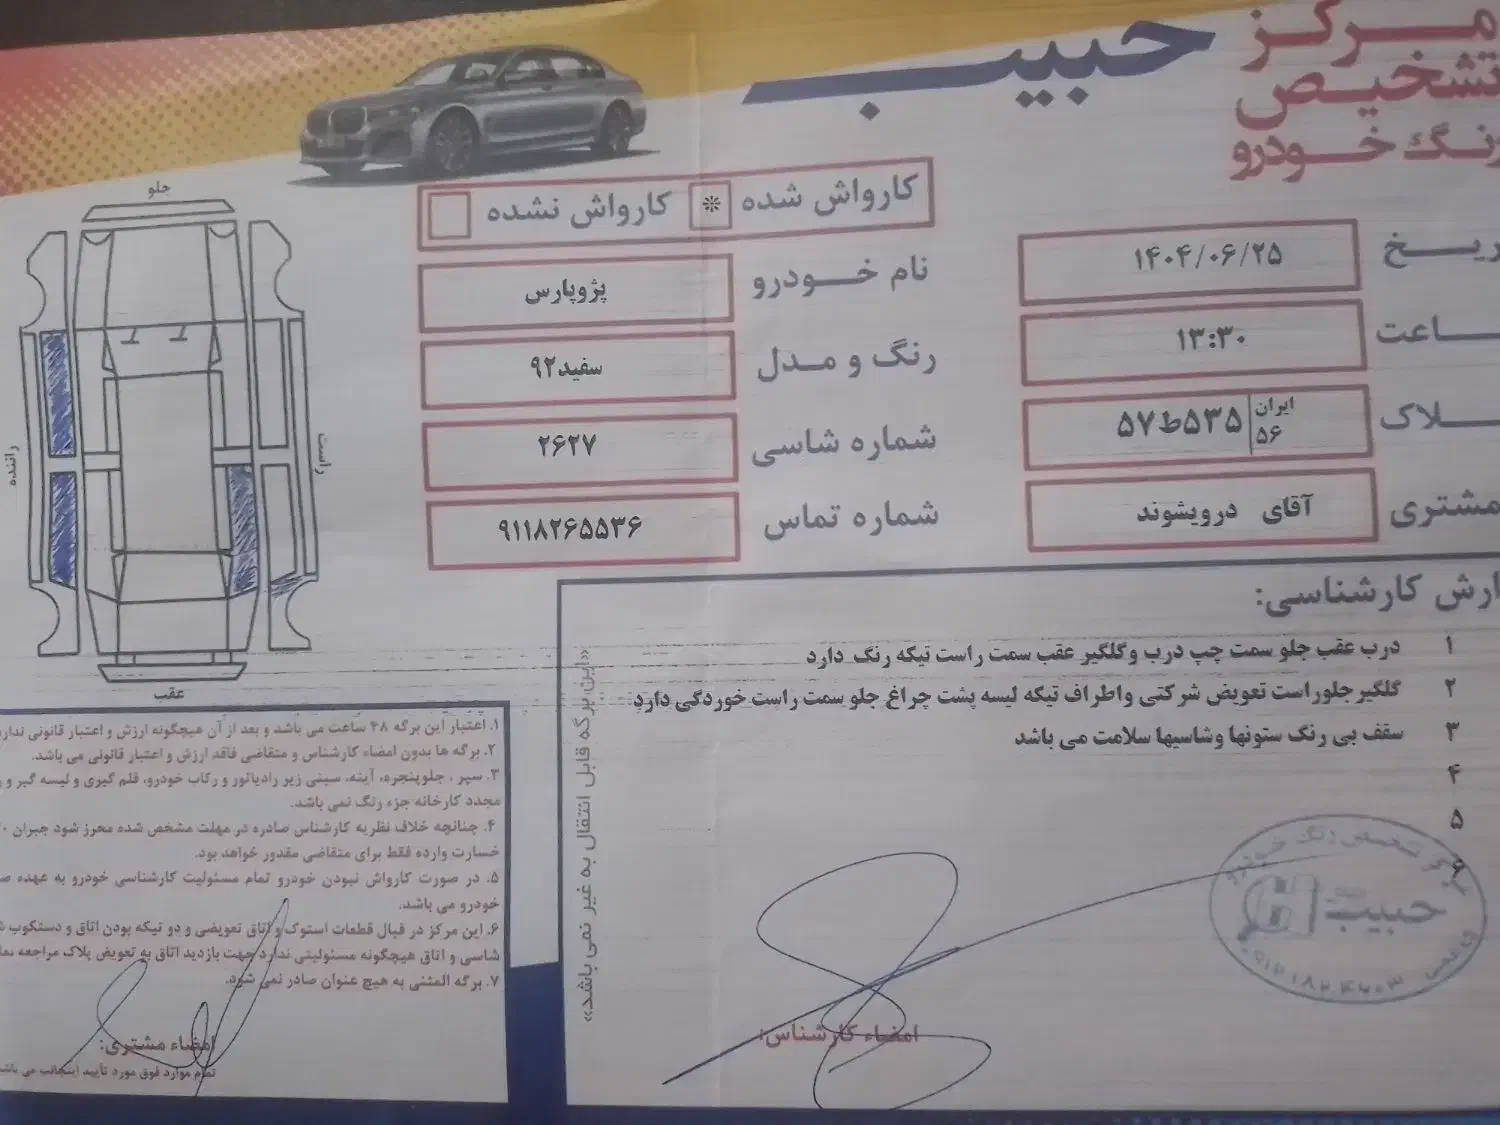 مرکز
تشخیص
رنگ خودرو
حبیب
کارواش شده * کارواش نشده
ریخ ۱۴۰۴/۰۶/۲۵
نام خودرو پژوپارس
ـاعت ۱۳:۳۰
رنگ و مدل سفید۹۲
ـلاک ایران ۵۶ ۵۳۵ط۵۷
شماره شاسی ۲۶۲۷
مشتری آقای درویشوند
شماره تماس ۹۱۱۸۲۶۵۵۳۶
جلو
راننده
راست
عقب
ارش کارشناسی:
۱ درب عقب جلو سمت چپ درب وگلگیر عقب سمت راست تیکه رنگ دارد
۲ گلگیر جلوراست تعویض شرکتی واطراف تیکه لیسه پشت چراغ جلو سمت راست خوردگی دارد
۳ سقف بی رنگ ستونها وشاسیها سلامت می باشد
۴
۵
۶
«این برگه قابل انتقال به غیر نمی باشد»
۱. اعتبار این برگه ۴۸ ساعت می باشد و بعد از آن هیچگونه ارزش و اعتبار قانونی ندار
۲. برگه ها بدون امضاء کارشناس و متقاضی فاقد ارزش و اعتبار قانونی می باشد.
۳. سپر ، جلوپنجره، آینه، سینی زیر رادیاتور و رکاب خودرو، قلم گیری و لیسه گیر و ر
مجدد کارخانه جزء رنگ نمی باشد.
۴. چنانچه خلاف نظریه کارشناس صادره در مهلت مشخص شده محرز شود جبران
خسارت وارده فقط برای متقاضی مقدور خواهد بود.
۵. در صورت کارواش نبودن خودرو تمام مسئولیت کارشناسی خودرو به عهده ص
خودرو می باشد.
۶. این مرکز در قبال قطعات استوک و اتاق تعویضی و دو تیکه بودن اتاق و دستکوب ش
شاسی و اتاق هیچگونه مسئولیتی ندارد جهت بازدید اتاق به تعویض پلاک مراجعه نما
۷. برگه المثنی به هیچ عنوان صادر نمی شود.
امضاء مشتری:
تمام موارد فوق مورد تأیید اینجانب می باشد
امضاء کارشناس:
مرکز تشخیص رنگ خودرو
حبیب